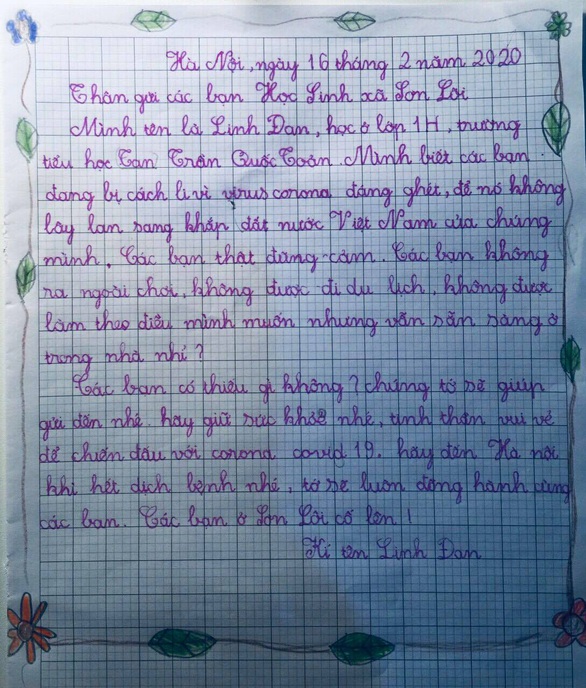 Hà Nội, ngày 16 tháng 2 năm 2020
Thân gửi các bạn Học Sinh xã Sơn Lôi
Mình tên là Linh Đan, học ở lớp 1H, trường
tiểu học Tan Trần Quốc Toản. Mình biết các bạn
đang bị cách li vì virus corona đáng ghét, để nó không
lây lan sang khắp đất nước Việt Nam của chúng
mình. Các bạn thật dũng cảm. Các bạn không
ra ngoài chơi, không được đi du lịch, không được
làm theo điều mình muốn nhưng vẫn sẵn sàng ở
trong nhà nhỉ?
Các bạn có thiếu gì không? chúng tớ sẽ giúp
gửi đến nhé. hãy giữ sức khỏe nhé, tinh thần vui vẻ
để chiến đấu với corona covid 19. hãy đến Hà nội
khi hết dịch bệnh nhé, tớ sẽ luôn đồng hành cùng
các bạn. Các bạn ở Sơn Lôi cố lên!
Kí tên Linh Đan